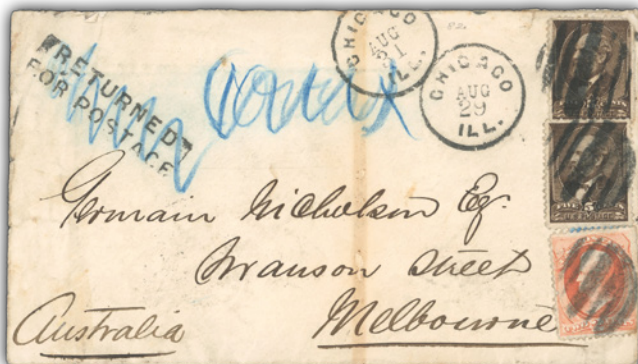 RETURNED
FOR POSTAGE
CHICAGO
AUG
31
ILL.
CHICAGO
AUG
29
ILL.
5
U.S. POSTAGE
Germain Nicholson Esq.
Swanson Street
Melbourne
Australia